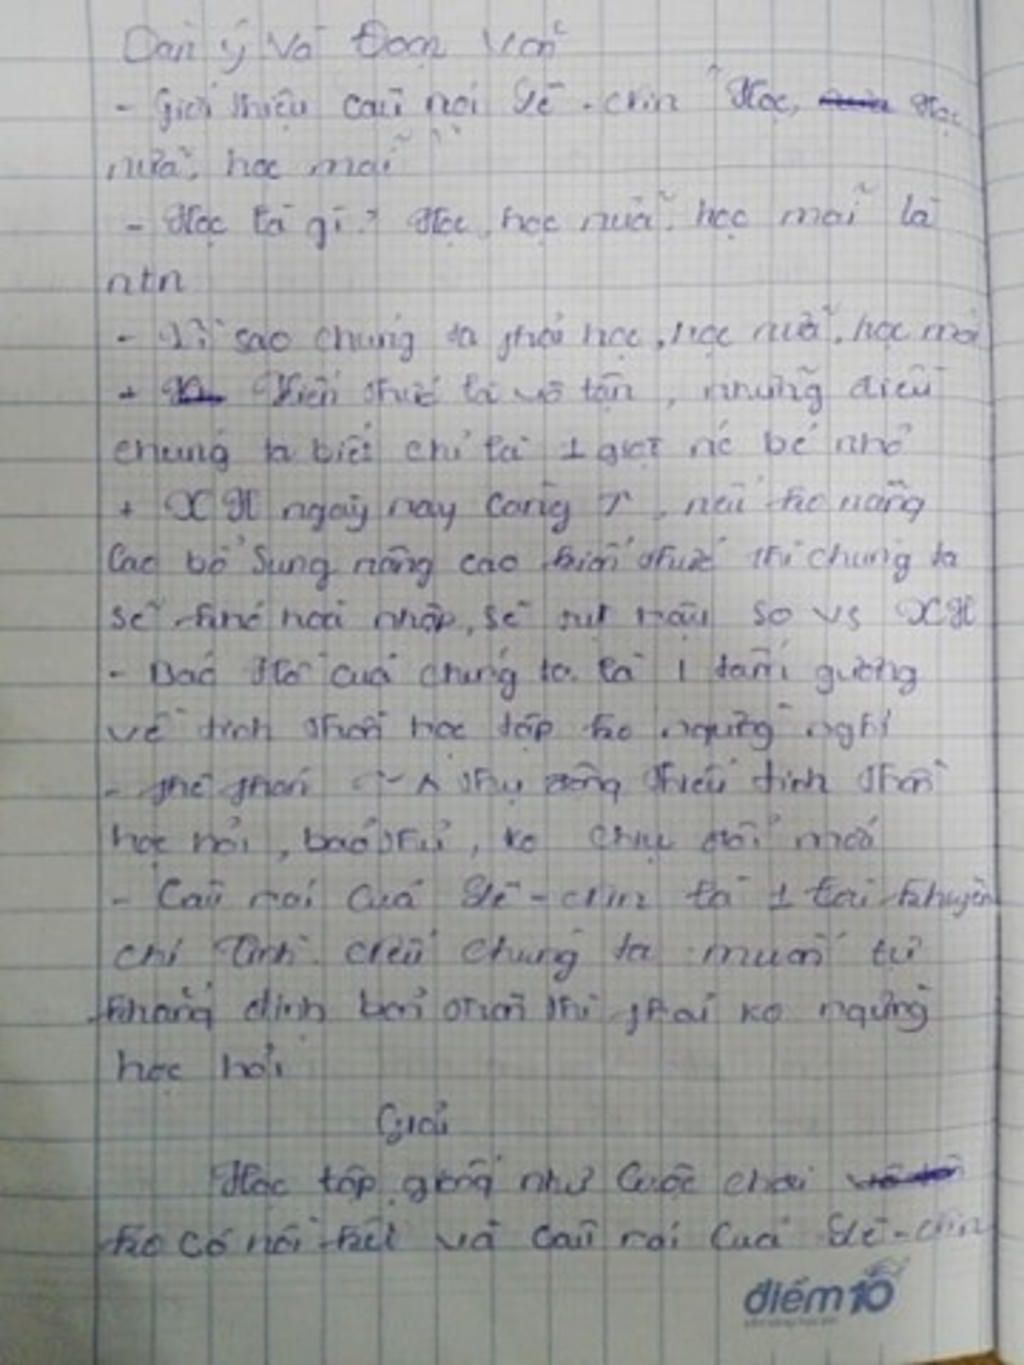 Dàn ý và Đoạn văn
- Giới thiệu câu nói Lê-nin "Học, Học
nữa, học mãi"
- Học là gì? Học, học nữa, học mãi là
ntn
- Vì sao chúng ta phải học, học nữa, học mãi
+ Kiến thức là vô tận, những điều
chúng ta biết chỉ là 1 giọt nc bé nhỏ
+ XH ngày nay càng ↑, nếu ko nâng
cao bổ sung nâng cao kiến thức thì chúng ta
sẽ khó hoà nhập, sẽ tụt hậu so vs XH
- Bác Hồ của chúng ta là 1 tấm gương
về tinh thần học tập ko ngừng nghỉ
- phê phán thụ động thiếu tinh thần
học hỏi, bảo thủ, ko chịu đổi mới
- Câu nói của Lê-nin là 1 lời khuyên
chí tình. Chúng ta muốn tự
khẳng định bản thân thì phải ko ngừng
học hỏi
Giải
Học tập giống như cuộc chơi
ko có hồi kết và câu nói của Lê-nin
điểm10